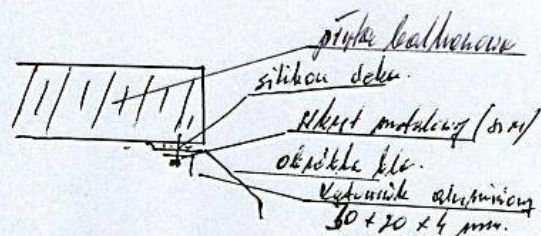 płyta balkonowa
silikon dekar.
wkręt metalowy (
obróbka bla.
kątownik aluminiowy
30 + 20 + 4 mm.